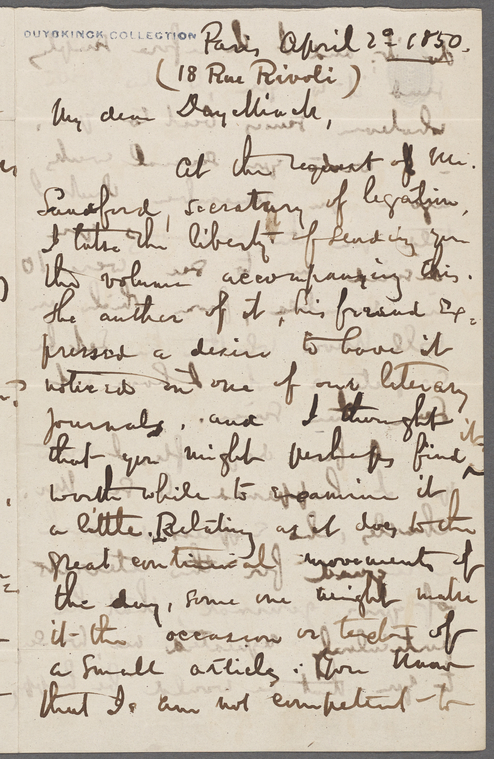 DUYCKINCK COLLECTION
Paris April 2d 1850.
(18 Rue Rivoli)
My dear Duyckinck,
At the request of Mr.
Sandford, secretary of legation,
I take the liberty of sending you
the volume accompanying this.
The author of it, his friend ex=
pressed a desire to have it
noticed in one of our literary
journals, and I thought
that you might perhaps find it
worth while to examine it
a little. Relating as it does to the
great continental movements of
the day, some one might make
it the occasion or of
a small article. You know
that I am not competent to